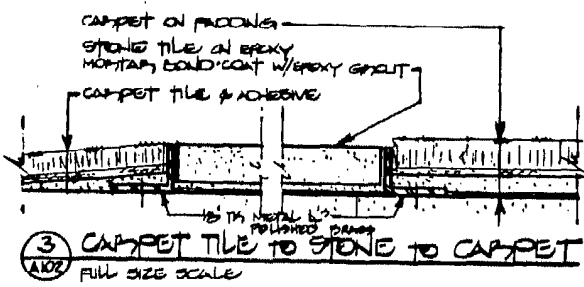 CARPET ON PADDING
STONE TILE ON EPOXY
MORTAR BOND COAT W/EPOXY GROUT
CARPET TILE & ADHESIVE
1/8" TK METAL L'S
POLISHED BRASS
3 CARPET TILE TO STONE TO CARPET
A102 FULL SIZE SCALE